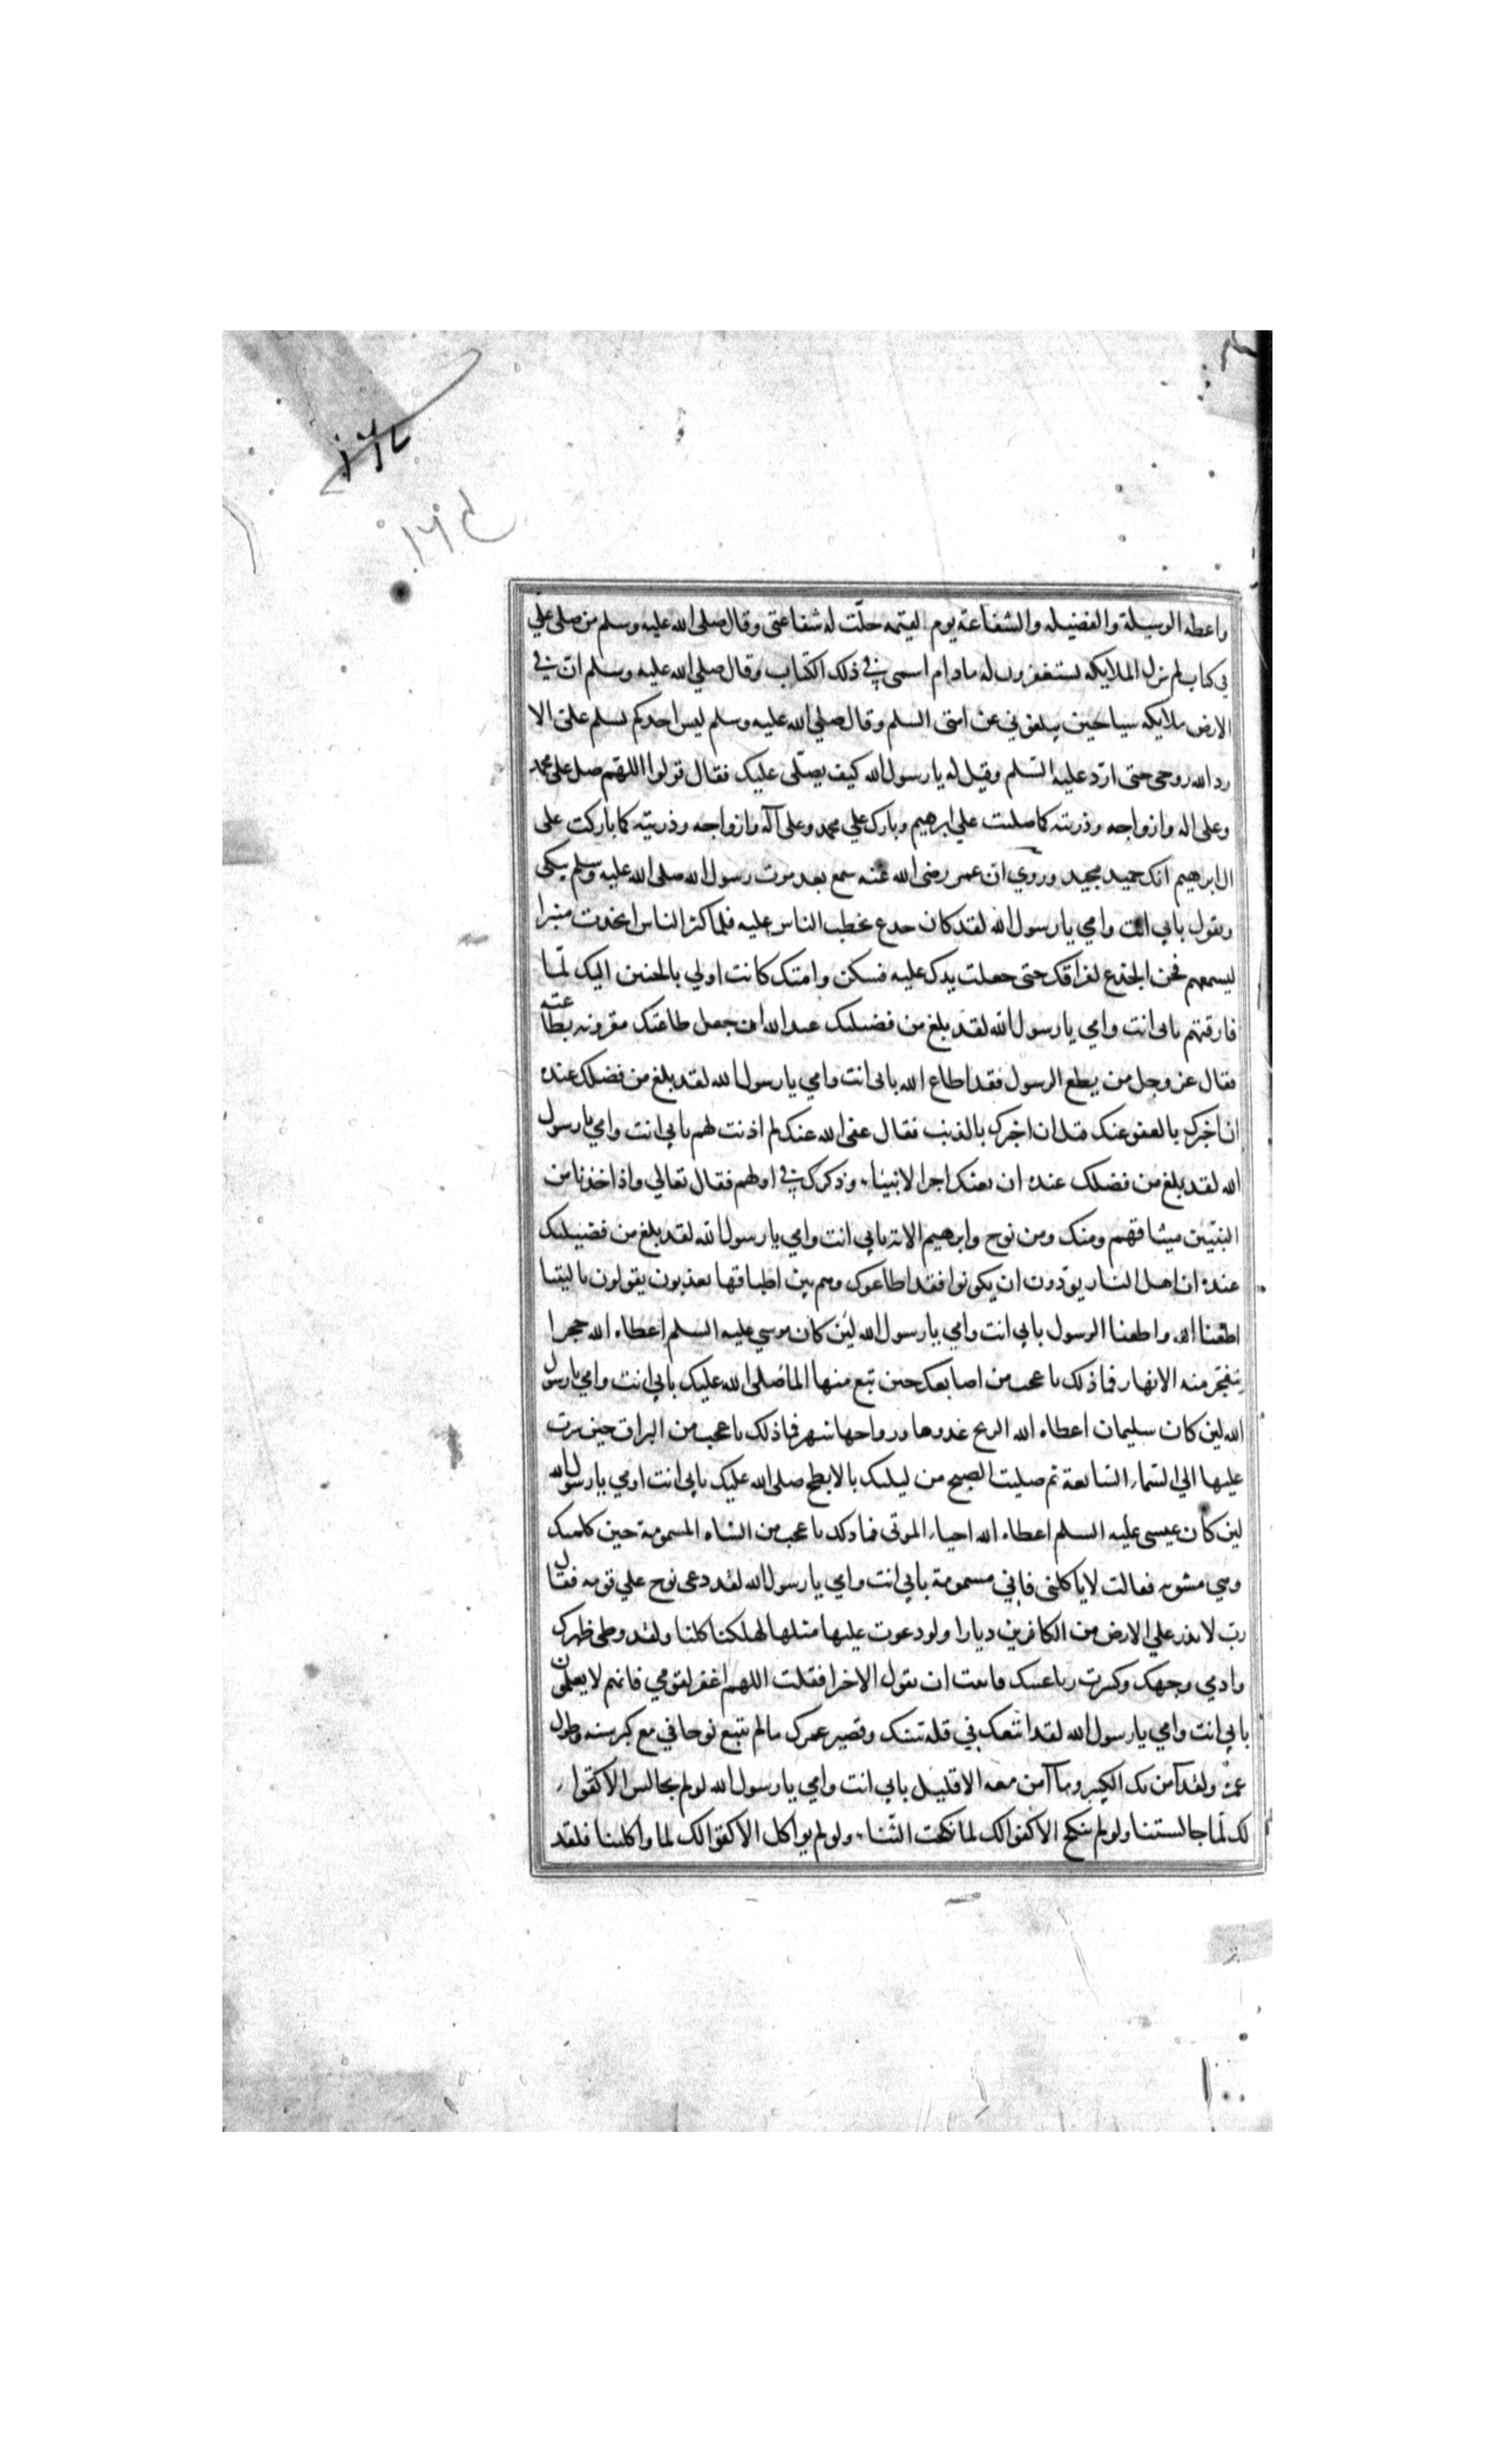 واعطه الوسيلة والفضيله والشفاعة يوم القيمه حلّت له شفاعتى وقال صلى الله عليه وسلم من صلى علىّ
في كتاب لم تزل الملايكه تستغفرون له مادام اسمى في ذلك الكتاب وقال صلي الله عليه وسلم انّ في
الارض ملايكه سياحين يبلغوني عن امتى السلم وقال صلي الله عليه وسلم ليس احدكم يسلم علىّ الا
رد الله روحى حتى اردّ عليه السّلم وقيل له يا رسول الله كيف يصلّى عليك فقال قولوا اللهّم صل على محمد
وعلى اله وازواجه وذريته كما صليت علي ابرهيم وبارك علي محمد وعلى آله وازواجه وذريته كما باركت على
ال ابرهيم انك حميد مجيد وروي ان عمر رضى الله عنه سمع بعد موت رسول الله صلى الله عليه وسلم يبكى
ويقول بابي انت وامي يا رسول الله لقد كان جدع تخطب الناس عليه فلما كثر الناس اتخذت منبرا
ليسمعهم فحن الجذع لفراقك حتى جعلت يدك عليه فسكن وامتك كانت اولي بالحنين اليك لمّا
فارقتهم بابى انت وامي يا رسول الله لقد بلغ من فضيلتك عند الله ان جعل طاعتك مقرونه بطاعته
فقال عز وجل من يطع الرسول فقد اطاع الله بابى انت وامي يا رسول الله لقد بلغ من فضلك عنده
ان اخبرك بالعفو عنك قبل ان اخبرك بالذنب فقال عفى الله عنك لم اذنت لهم بابي انت وامي يا رسول
الله لقد بلغ من فضلك عنده ان بعثك اخر الانبياء وذكرك في اولهم فقال تعالي واذ اخذنا من
النبيّين ميثاقهم ومنك ومن نوح وابرهيم الاية بابي انت وامي يا رسول الله لقد بلغ من فضيلتك
عنده ان اهل النار يودّون ان يكونوا فقد اطاعوك وهم بين اطباقها يعذبون يقولون يا ليتنا
اطعنا الله واطعنا الرسول بابي انت وامي يا رسول الله لئن كان موسي عليه السلم اعطاه الله حجرا
يتفجّر منه الانهار فماذلك باعجب من اصابعك حين نبع منها الما صلى الله عليك بابي انت وامي يا رسول
الله لين كان سليمان اعطاه الله الريح غدوها ورواحها شهر فماذلك باعجب من البراق حين سرت
عليها الي السّماء السّابعة ثم صليت الصبح من ليلتك بالابطح صلى الله عليك بابي انت اومي يا رسول الله
لين كان عيسى عليه السلم اعطاه الله احياء الموتى فماذلك باعجب من الشاه المسمومة حين كلمتك
وهي مشويه فقالت لا ياكلنى فاني مسمومة بابي انت وامي يا رسول الله لقد دعى نوح علي قومه فقال
رب لا تذر علي الارض من الكافرين ديارا ولو دعوت عليها مثلها لهلكنا كلنا ولقد وطى ظهرك
وادمي وجهك وكسرت رباعيتك فابيت ان تقول الا خيرا فقلت اللهم اغفر لقومي فانهم لا يعلمون
بابي انت وامي يا رسول الله لقد اتبعك في قلة سنك وقصير عمرك مالم يتبع نوحا في مع كبر سنه وطول
عمره ولقد آمن بك الكثير وما آمن معه الا قليل بابي انت وامي يا رسول الله لو لم تجالس الا كفوا
لك لمّا جالستنا ولو لم تنكح الا كفوا لك لما نكحت النّساء ولو لم يواكل الا كفوا لك لما واكلتنا فلقد